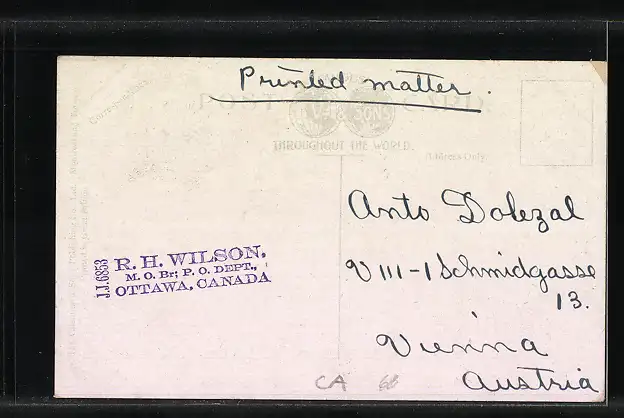 Printed matter.
POST CARD
THROUGHOUT THE WORLD.
Correspondence
Address Only
Anto Dolezal
VIII-1 Schmidgasse
13.
Vienna
Austria
J.J.6853
R. H. WILSON,
M. O. Br; P. O. DEPT.,
OTTAWA, CANADA
CA 60